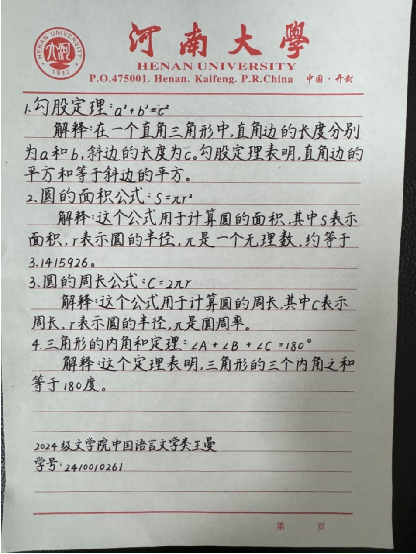 河南大學
HENAN UNIVERSITY
P.O.475001. Henan. Kaifeng. P.R.China 中国·开封
HENAN UNIVERSITY
1912
1.勾股定理:a²+b²=c²
解释:在一个直角三角形中,直角边的长度分别
为a和b,斜边的长度为c。勾股定理表明,直角边的
平方和等于斜边的平方。
2.圆的面积公式:S=πr²
解释:这个公式用于计算圆的面积,其中S表示
面积,r表示圆的半径,π是一个无理数,约等于
3.1415926。
3.圆的周长公式:C=2πr
解释:这个公式用于计算圆的周长,其中C表示
周长,r表示圆的半径,π是圆周率。
4.三角形的内角和定理:∠A+∠B+∠C=180°
解释:这个定理表明,三角形的三个内角之和
等于180度。
2024级文学院中国语言文学类王曼
学号:2410010261
第 页